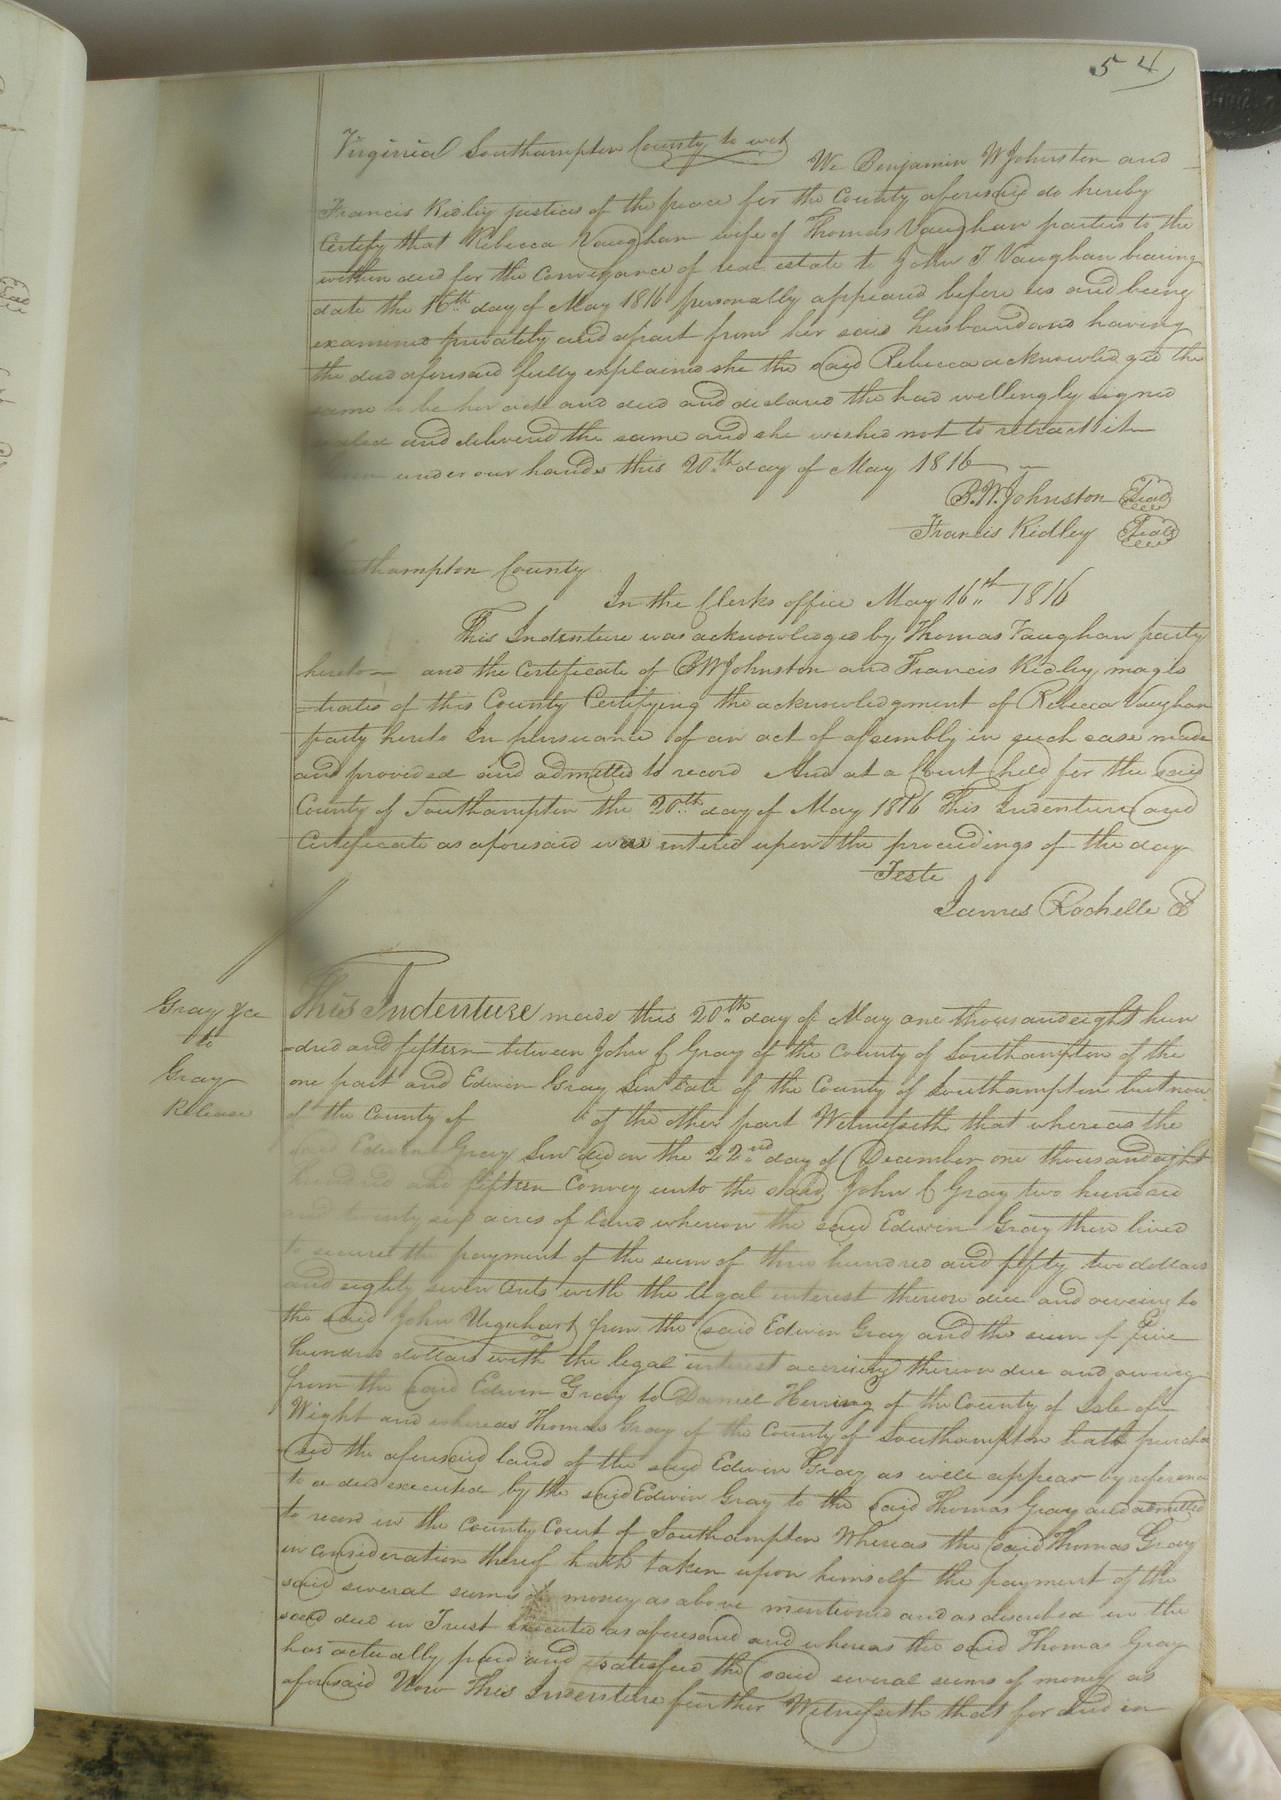 54
Virginia Southampton County to wit
We Benjamin W Johnston and
Francis Ridley justices of the peace for the County aforesaid do hereby
Certify that Rebecca Vaughan wife of Thomas Vaughan parties to the
within deed for the Conveyance of real estate to John T Vaughan bearing
date the 16th day of May 1816 personally appeared before us and being
examined privately and apart from her said Husband and having
the deed aforesaid fully explained she the said Rebecca acknowledged the
same to be her act and deed and declared the had wellingly signed
sealed and delivered the same and she wished not to retract it
under our hands this 20th day of May 1816
B. W. Johnston Seal
Francis Ridley Seal
Southampton County
In the Clerks office May 16th 1816
This Indenture was acknowledged by Thomas Vaughan party
hereto and the Certificate of B W Johnston and Francis Ridley magis
=trates of this County Certifying the acknowledgment of Rebecca Vaughan
party hereto In persuance of an act of assembly in such case made
and provided and admitted to record And at a Court held for the said
County of Southampton the 20th day of May 1816 This Indenture and
Certificate as aforesaid was entered upon the proceedings of the day
Teste
James Rochelle
Gray &c
to
Gray
Release
This Indenture made this 20th day of May one thousand eight hun
=dred and fifteen between John C Gray of the County of Southampton of the
one part and Edwin Gray Senr late of the County of Southampton but now
of the County of of the other part Witnesseth that whereas the
said Edwin Gray Senr did on the 22nd day of December one thousand eight
hundred and fifteen Convey unto the said John C Gray two hundred
and twenty six acres of land whereon the said Edwin Gray then lived
to secure the payment of the sum of three hundred and fifty two dollars
and eighty seven Cents with the legal interest thereon due and owing to
the said John Urquhart from the said Edwin Gray and the sum of five
hundred dollars with the legal interest accruing thereon due and owing
from the said Edwin Gray to Daniel Herring of the County of Isle of
Wight and whereas Thomas Gray of the County of Southampton hath purcha
sed the aforesaid land of the said Edwin Gray as will appear by referenc
to a deed executed by the said Edwin Gray to the said Thomas Gray and admitted
to record in the County Court of Southampton Whereas the said Thomas Gray
in consideration thereof hath taken upon himself the payment of the
said several sums of money as above mentioned and as described in the
said deed in Trust executed as aforesaid and whereas the said Thomas Gray
has actually paid and satisfied the said several sums of money as
aforesaid Now This Indenture further Witnesseth that for and in